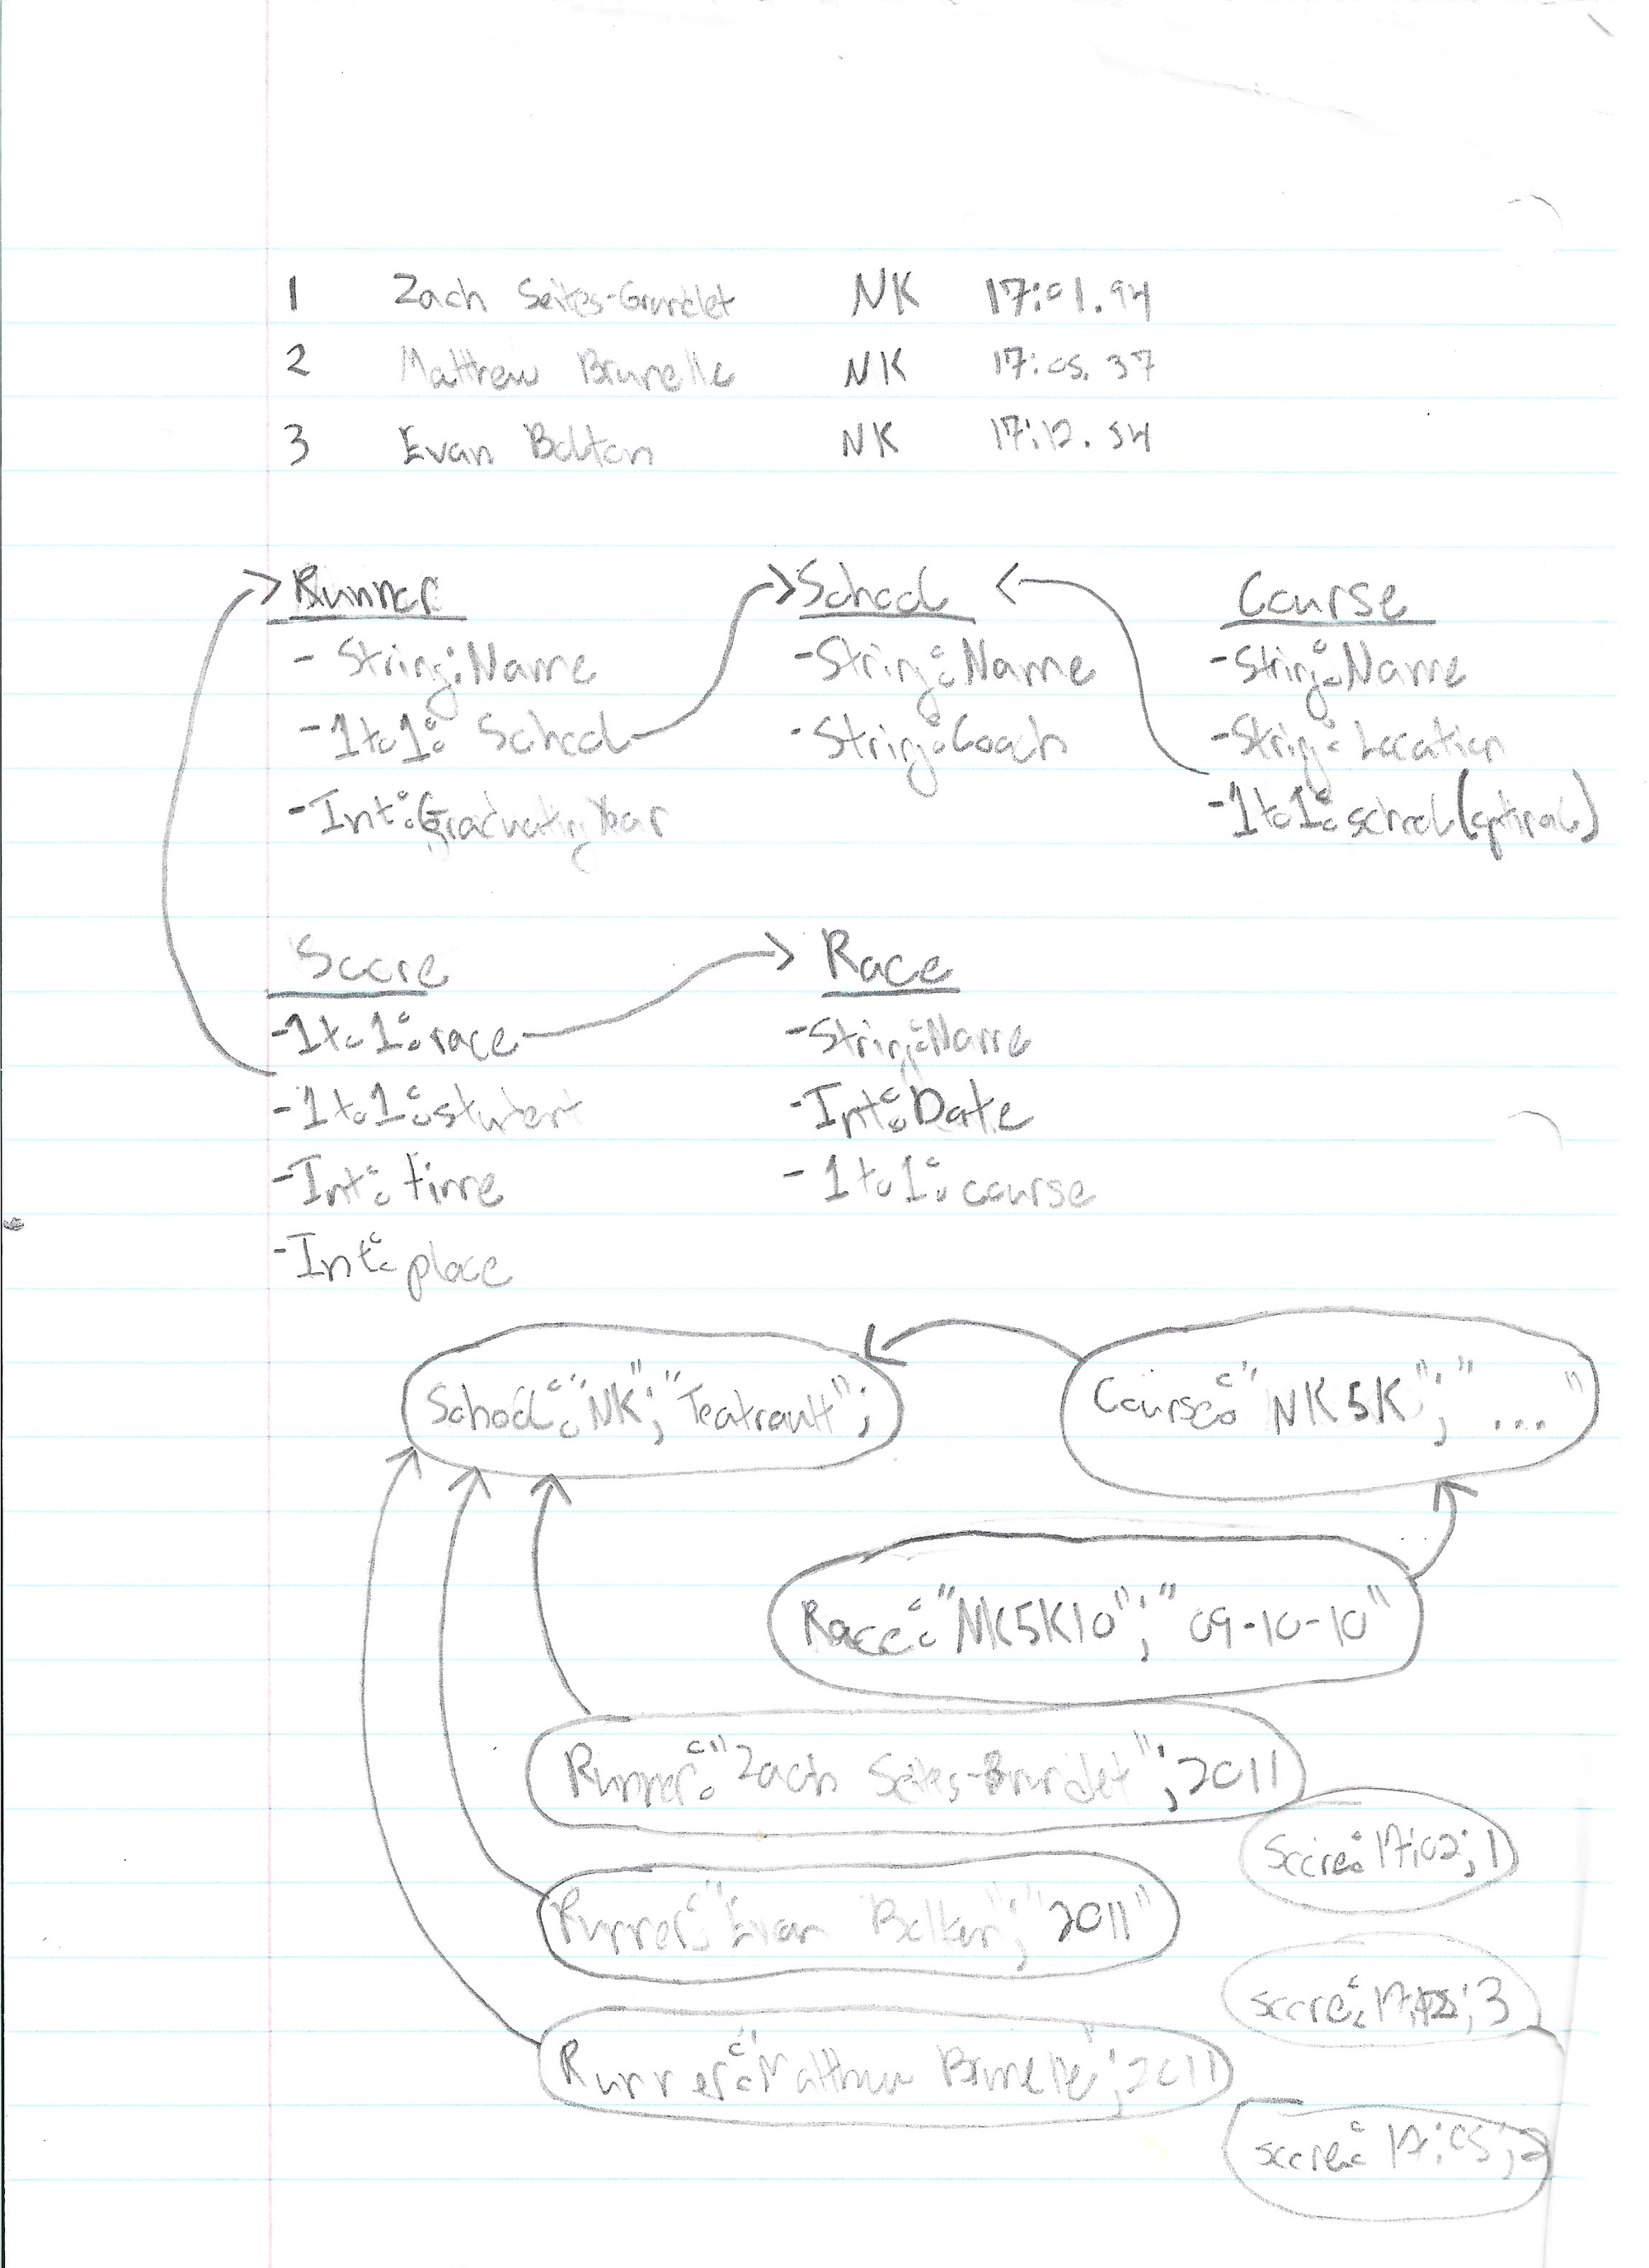 1 Zach Seites-Grundlet NK 17:01.94
2 Matthew Brunelle NK 17:05.37
3 Evan Bolton NK 17:12.54
Runner School Course
- String:Name -String:Name -String:Name
-1to1: School -String:Coach -String:Location
-Int:GraduatingYear -1to1:school(optional)
Score Race
-1to1:race -String:Name
-1to1:student -Int:Date
-Int:time -1to1:course
-Int:place
School:"NK";"Teatrault"; Course:"NK5K";"..."
Race:"NK5K10";"09-10-10"
Runner:"Zach Seites-Brundlet";2011
Score:17:02;1
Runner:"Evan Bolton";"2011"
Score:;3
Runner:"Matthew Brunelle";2011
Score:17:05;2